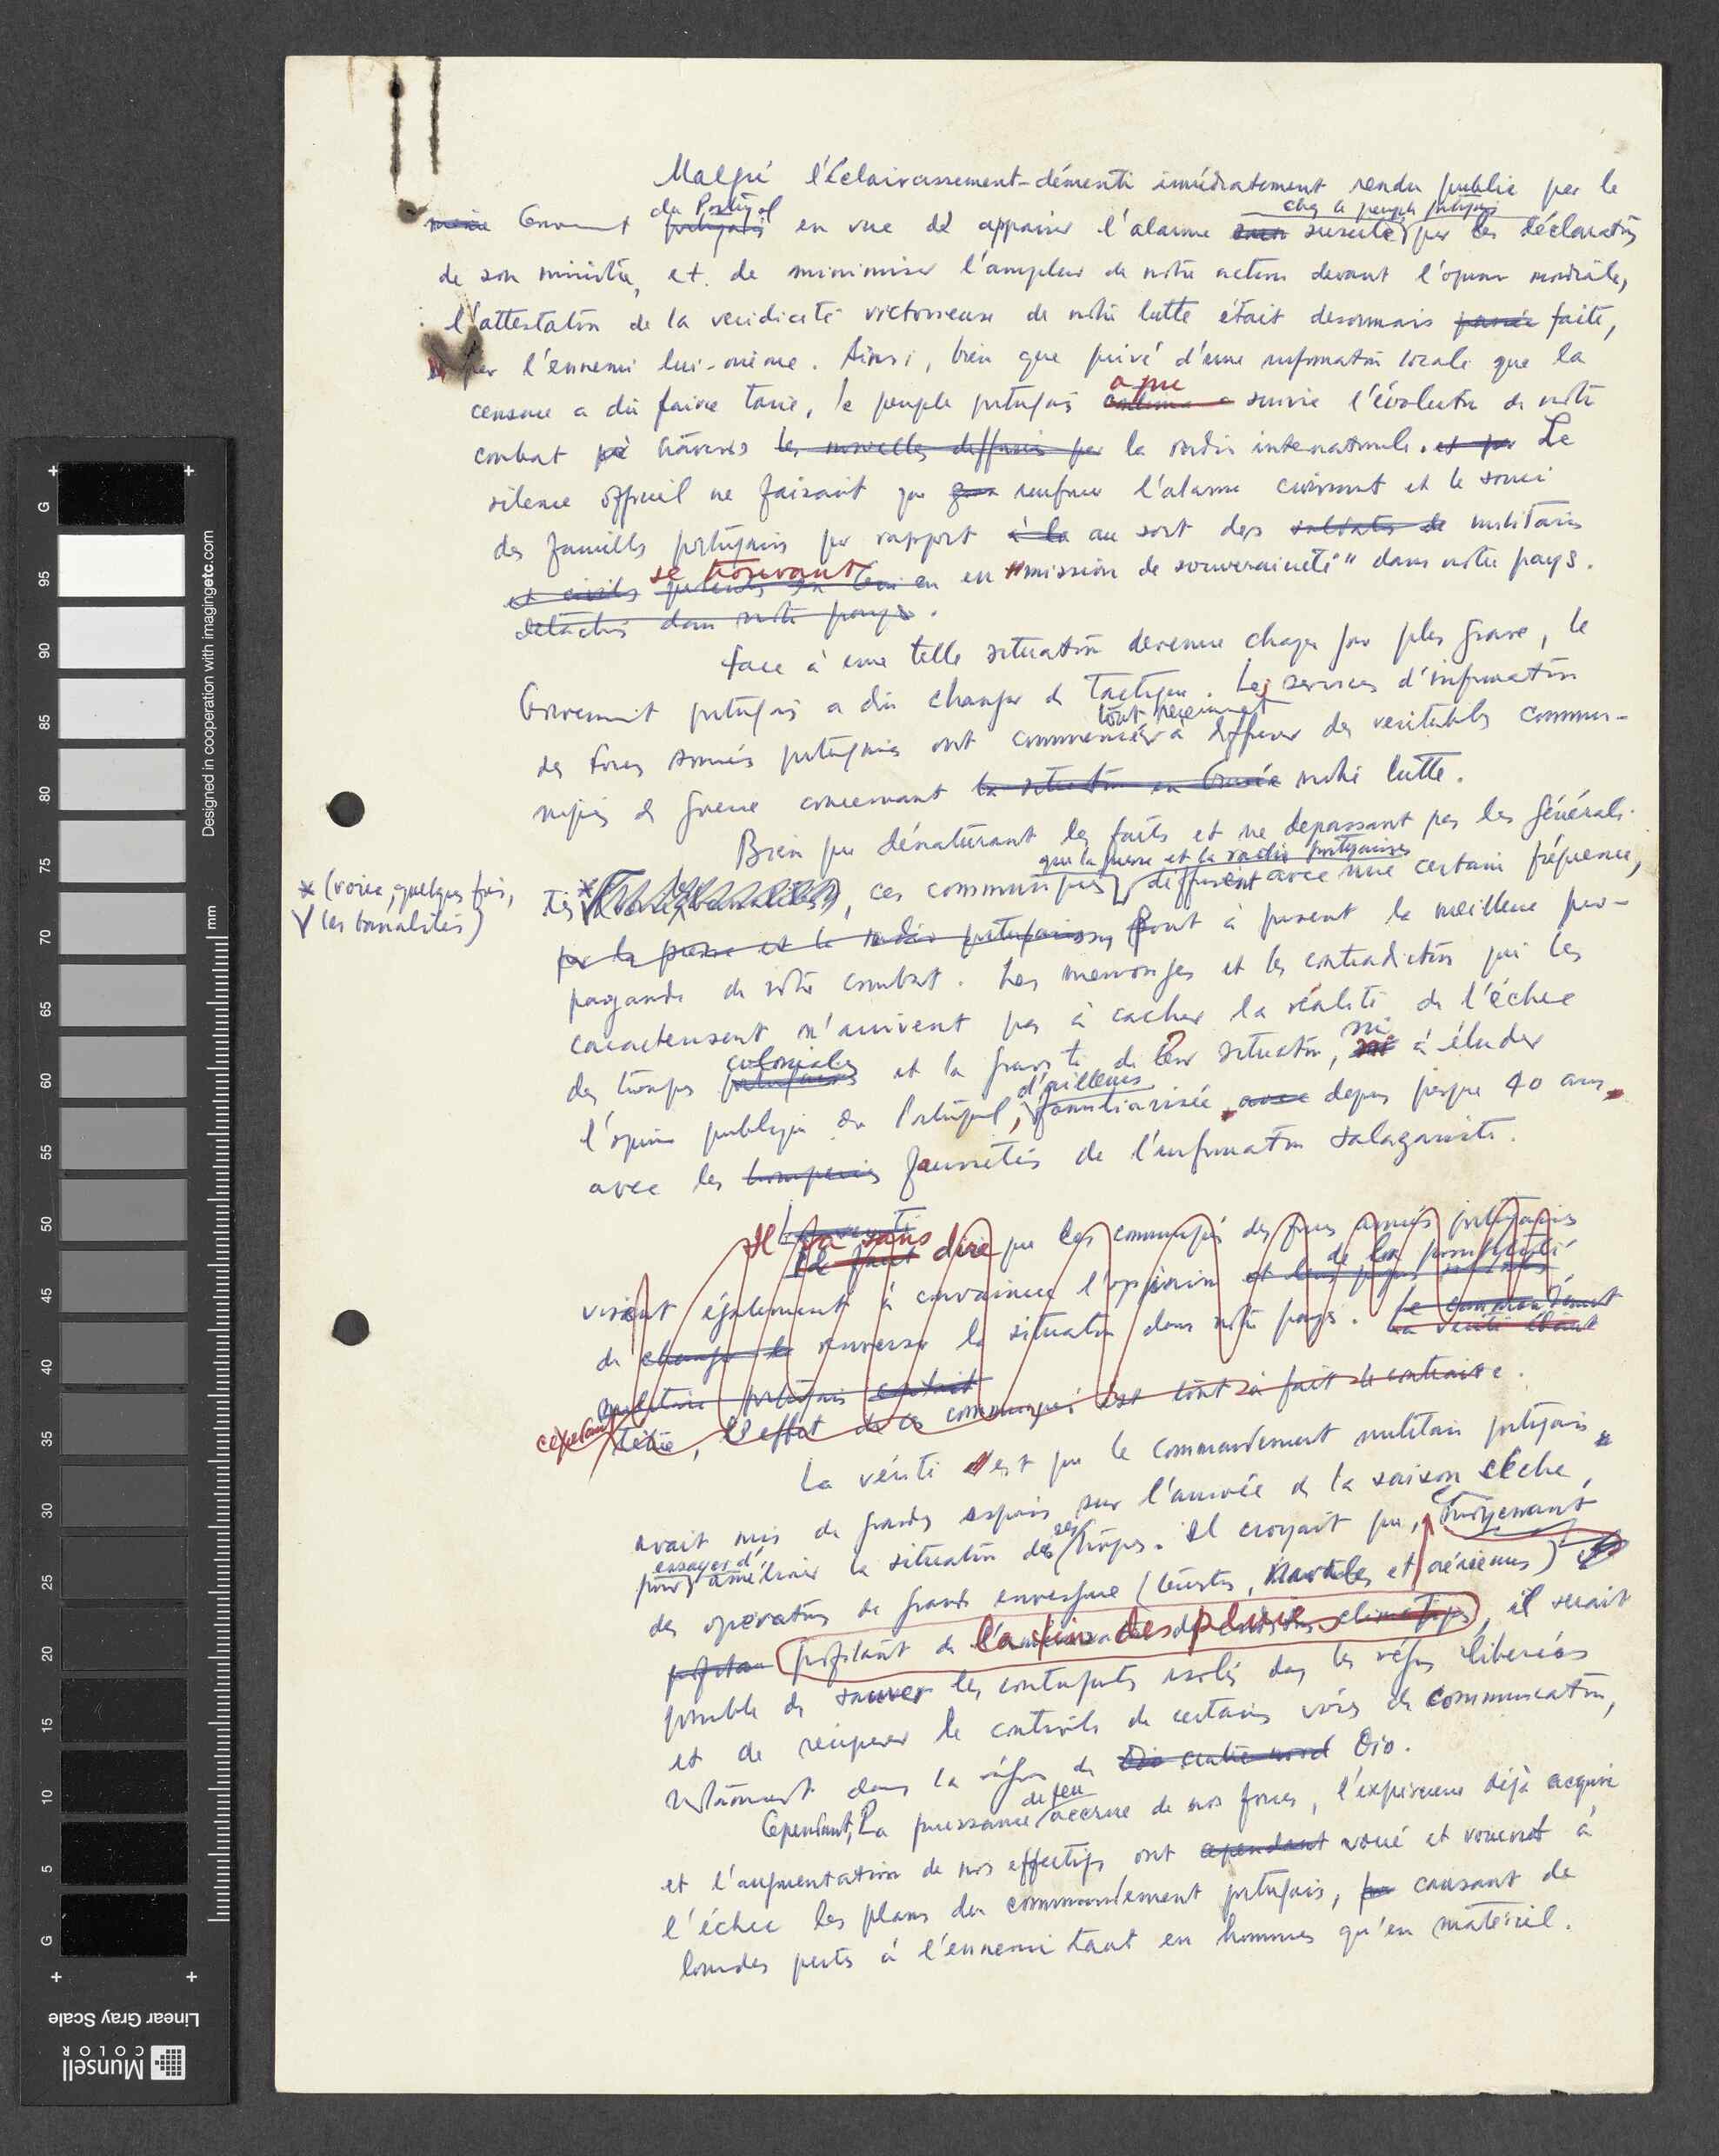 Malgré l'éclaircissement-démenti immédiatement rendu public par le
même Gouvernement du Portugal portugais en vue de appaiser l'alarme chez le peuple portugais suscitée par les déclarations
de son ministre, et de minimiser l'ampleur de notre action devant l'opinion mondiale,
l'attestation de la veridicité victorieuse de notre lutte était desormais faite,
par l'ennemi lui-même. Ainsi, bien que privé d'une information locale que la
censure a dû faire taire, le peuple portugais a pu suivre l'évolution de notre
combat à travers les nouvelles diffusées par la radio internationale. et par Le
silence officiel ne faisant que renforcer l'alarme croissant et le souci
des familles portugaises par rapport à la au sort des soldats de militaires
et civils se trouvant en "mission de souveraineté" dans notre pays.
détachés dans notre pays.
Face à une telle situation devenue chaque jour plus grave, le
Gouvernement portugais a dû changer de tactique. Les services d'information
des forces armées portugaises ont tout récemment commencé à diffuser des veritables commu-
niqués de guerre concernant la situation en Guinée notre lutte.
Bien que dénaturant les faits et ne depassant pas les générali-
* (voire, quelques fois,
V les banalités)
tés, ces communiqués que la presse et la radio portugaises diffusent avec une certaine fréquence,
par la presse et la radio portugaises, font à présent la meilleure pro-
pagande de notre combat. Les mensonges et les contradictions qui les
caracterisent n'arrivent pas à cacher la réalité de l'échec
des troupes coloniales portugaises et la gravité de leur situation, ni à éluder
l'opinion publique du Portugal, d'ailleurs familiarisée avec depuis presque 40 ans,
avec les faussetés de l'information salazariste.
Il va sans dire que les communiqués des forces armées portugaises
Il faut
visent également à convaincre l'opinion de leur possibilité
de changer la renverser la situation dans notre pays. Le commandement
La vérité étant
militaire portugais
cependant, l'effet de ces communiqués est tout à fait le contraire.
La vérité est que le commandement militaire portugais
avait mis de grands espoirs sur l'arrivée de la saison sèche,
pour essayer d'améliorer la situation de ses troupes. Il croyait que, moyennant
des operations de grande envergure (terrestres, navales et aériennes)
profitant de la fin des pluies climatiques, il serait
possible de sauver les contingents isolés dans les régions liberées
et de récuperer le contrôle de certaines voies de communication,
notamment dans la région de Oio centre-nord Oio.
Cependant, la puissance de feu accrue de nos forces, l'expérience déjà acquise
et l'augmentation de nos effectifs ont cependant voué et voueront à
l'échec les plans du commandement portugais, causant de
lourdes pertes à l'ennemi tant en hommes qu'en matériel.
Designed in cooperation with imagingetc.com
mm
G 95 90 85 80 75 70 65 60 55 50 45 40 35 30 25 20 15 10 5 G
Linear Gray Scale
Munsell
COLOR